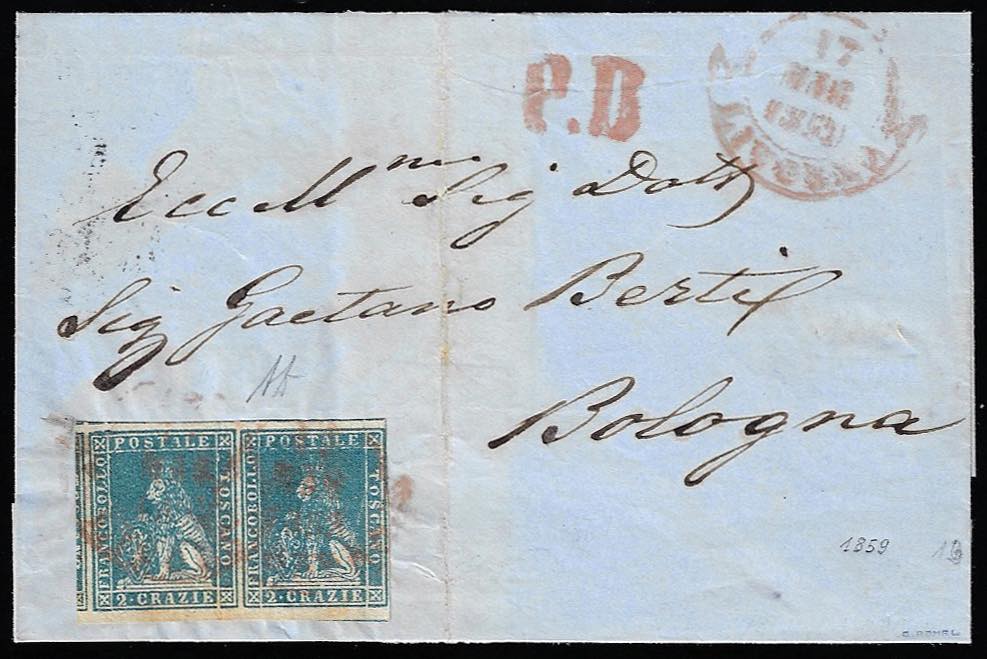 P.D
17
MAR
Ecc Mmo Sig Dott
Sig Gaetano Berti
Bologna
POSTALE
FRANCOBOLLO
TOSCANO
2·CRAZIE
POSTALE
FRANCOBOLLO
TOSCANO
2·CRAZIE
1859